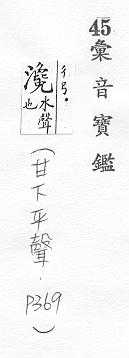 45 彙音寶鑑
ㄔㄢˊ
瀺水聲也
(甘下平聲. P369)